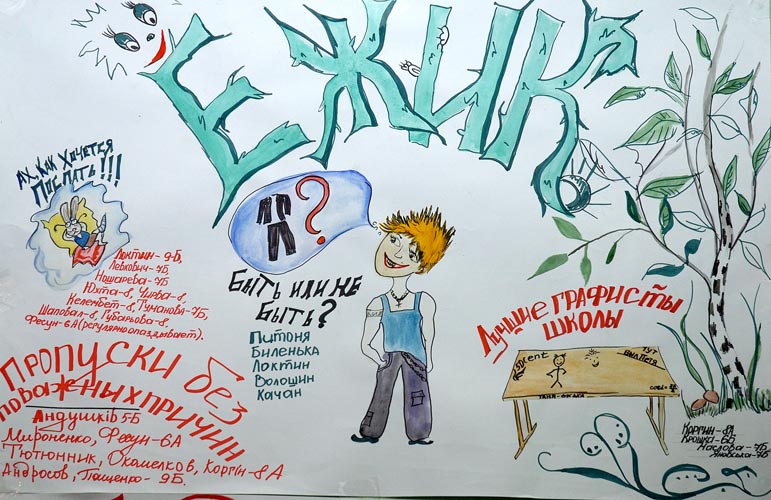 ЕЖИК
АХ, КАК ХОЧЕТСЯ
ПОСПАТЬ!!!
Локтин - 9-Б,
Левкович - 7Б
Ношарева - 7Б
Юхта - 8, Чирва - 8,
Келембет - 8, Туманова - 7Б,
Шаповал - 8, Губарьова - 8,
Фесун - 6А (регулярно опаздывает).
ПРОПУСКИ без
по важеных причин
Андущків 5-Б
Мироненко, Фесун - 6А
Тютюнник, Окомелков, Коргін - 8А
Андросов, Пащенко - 9Б.
?
БЫТЬ ИЛИ НЕ
БЫТЬ?
Питоня
Биленька
Локтин
Волошин
Качан
Лучшие ГРАФИСТЫ
ШКОЛЫ
50cent
ТУТ
БЫЛ ПЕТЯ
Коргин - 8А
Крошка - 6Б
Маслова - 7Б
Яновська - 7Б